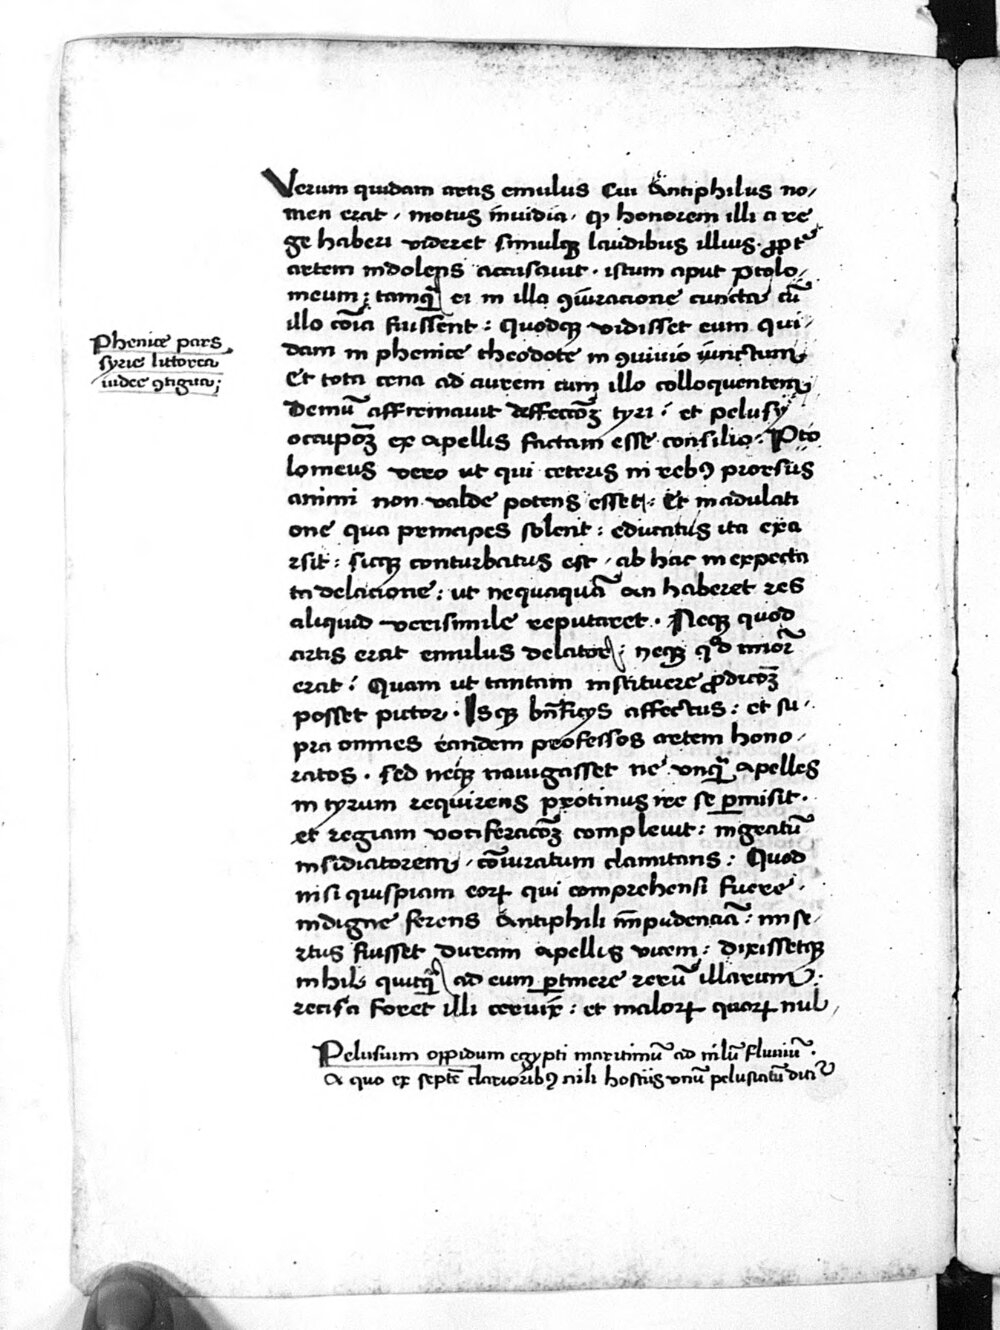 Verum quidam artis emulus Cui Antiphilus no/
men erat, motus inuidia, qꝫ honorem illi a re
ge haberi videret simulqꝫ laudibus illius, ꝓpt᷑
artem indolens accusauit. istum aput Ptolo,
meum; tamq̃ ei in illa ꝯiuracione cuncta cũ
illo cõia fiussent: Quodqꝫ vidisset eum qui,
dam in phenice theodote in ꝯuiuio iunctum
Et tota cena ad aurem cum illo colloquentem
Demũ affirmauit deffeccõꝫ tyri: et pelusy
occupõꝫ ex apellis factam esse consilio. Pto
lomeus vero ut qui ceteris in rebꝰ prorsus
animi non valde potens esset: Et in adulati
one qua principes solent: educatus ita exa
rsit: sicqꝫ conturbatus est, ab hac inexpecta
ta delacione: ut nequaquã an haberet res
aliquid verisimile reputaret. Neqꝫ quod
artis erat emulus delator; neqꝫ qͦd minor̃
erat: Quam ut tantam instituere ꝓdicõꝫ
posset pictor. Isqꝫ bñficys affectus: et su,
pra omnes eandem professos artem hono,
ratos. sed neqꝫ nauigasset ne vnq̃ apelles
in tyrum requirens protinus ire se ꝑmisit.
et regiam vociferacõꝫ compleuit: ingratũ
insidiatorem, cõiuratum clamitans: Quod
nisi quispiam eoꝝ qui comprehensi fuere,
indigne ferens Antiphili impudenciã: mise,
rtus fiusset duram apellis vicem: dixissetqꝫ
inhil quicq̃ ad eum ꝑtinere rerũ illarum:
recisa foret illi ceruix: et maloꝝ quoꝝ nul,
Phenice pars
syrie littorea
iudee ꝯtigua;
Pelusium oppidum egypti maritimũ ad nilũ fluuiũ.
A quo ex septẽ clarioribꝰ nili hostiis vnũ pelusiacũ dicit᷑